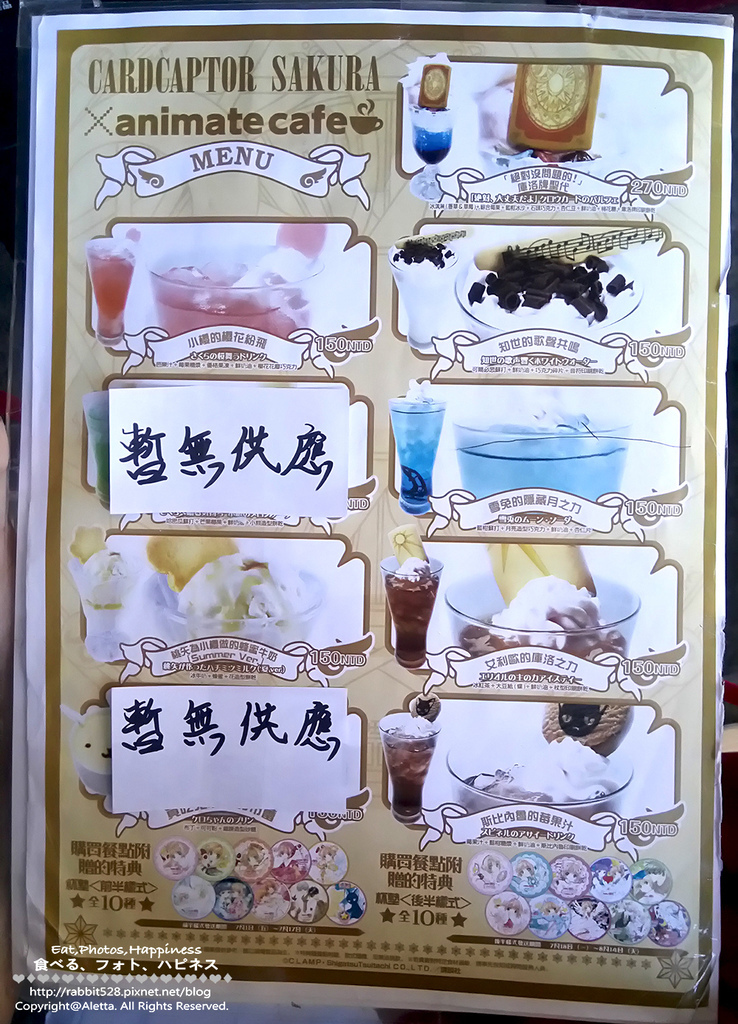 CARDCAPTOR SAKURA
×animate cafe
MENU
「絕對沒問題的!」
庫洛牌聖代
270NTD
「絶対、大丈夫だよ」クロウカードのパルフェ
小櫻的櫻花紛飛
150NTD
さくらの桜舞うドリンク
知世的歌聲共鳴
150NTD
知世の歌声響くホワイトウォーター
暫無供應
雪兔的隱藏月之力
150NTD
雪兎のムーンソーダ
桃矢為小櫻做的蜂蜜牛奶
(Summer Ver.)
150NTD
桃矢が作ったハチミツミルク(夏ver)
冰牛奶+蜂蜜+花造型餅乾
艾利歐的庫洛之力
150NTD
エリオルの主の力アイスティー
暫無供應
ケロちゃんのプリン
斯比內魯的莓果汁
150NTD
スピネルのアサイードリンク
購買餐點附
贈的特典
杯墊<前半樣式>
★全10種★
購買餐點附
贈的特典
杯墊<後半樣式>
★全10種★
©CLAMP・ShigatsuTsuitachi CO.,LTD./講談社
Eat,Photos,Happiness
食べる、フォト、ハピネス
http://rabbit528.pixnet.net/blog
Copyright@Aletta. All Rights Reserved.